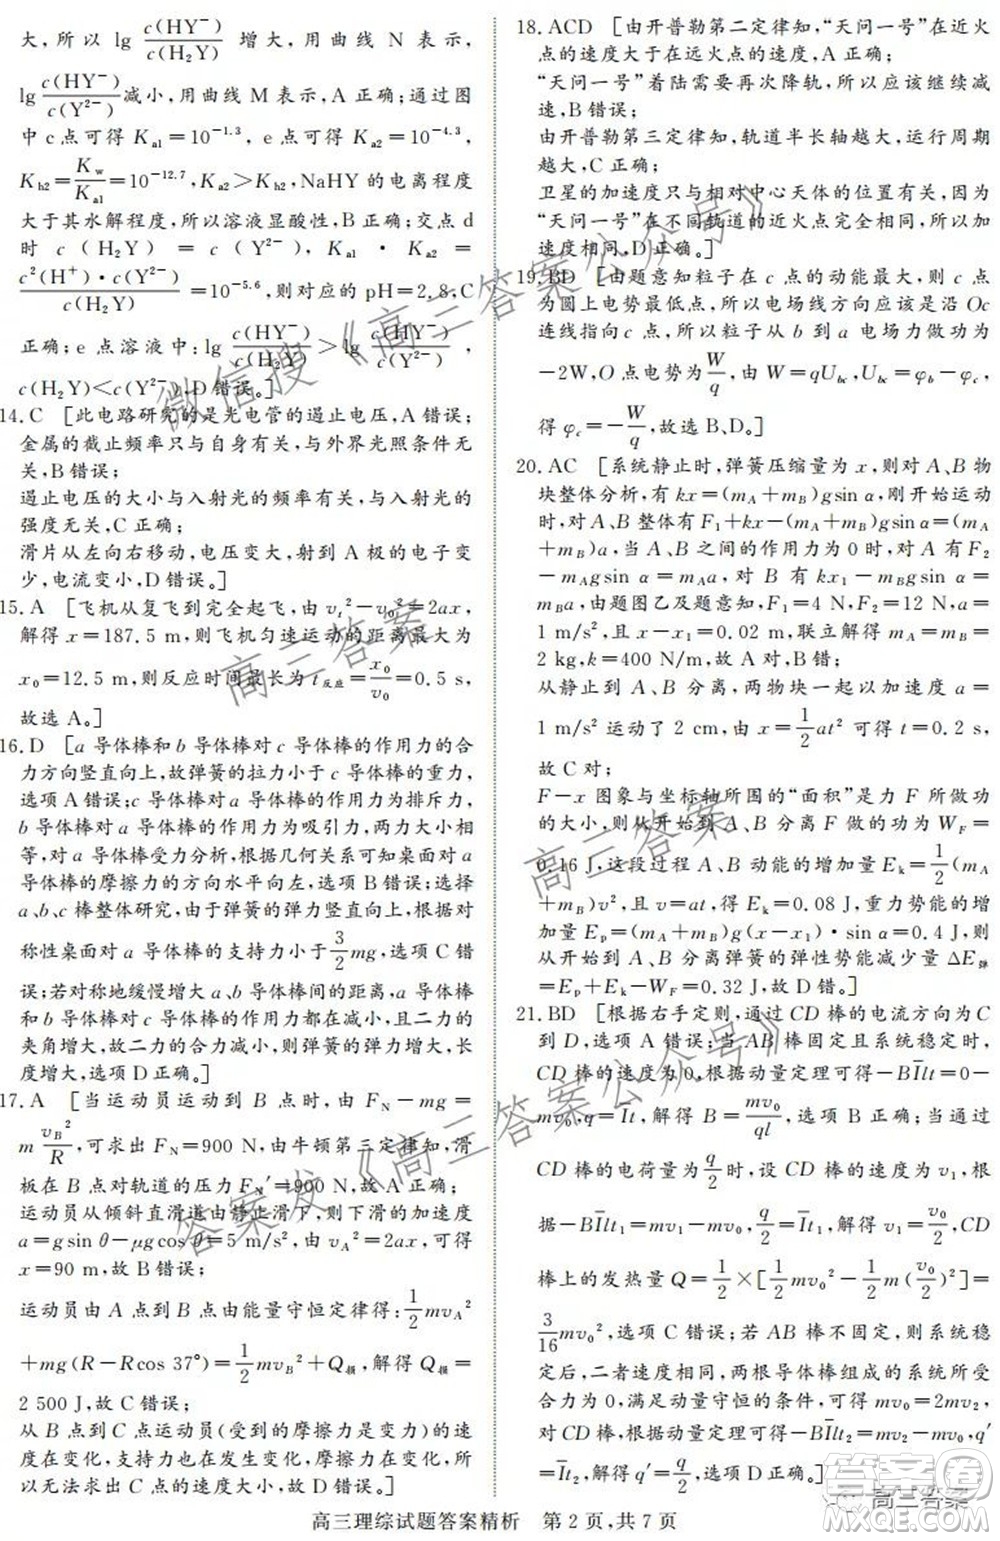 大，所以 lg c(HY⁻)/c(H₂Y) 增大，用曲线 N 表示，
lg c(HY⁻)/c(Y²⁻) 减小，用曲线 M 表示，A 正确；通过图
中 c 点可得 Kₐ₁=10⁻¹·³，e 点可得 Kₐ₂=10⁻⁴·³，
K_h2=K_w/Kₐ₁=10⁻¹²·⁷，故 Kₐ₂>K_h2，NaHY 的电离程度
大于其水解程度，所以溶液显酸性，B 正确；交点 d
时 c(H₂Y) = c(Y²⁻)，Kₐ₁ · Kₐ₂ =
c²(H⁺)·c(Y²⁻)/c(H₂Y) =10⁻⁵·⁶，则对应的 pH=2.8，C
正确；e 点溶液中：lg c(HY⁻)/c(H₂Y) > lg c(HY⁻)/c(Y²⁻)，
c(H₂Y)<c(Y²⁻)，D 错误。]
14. C [此电路研究的是光电管的遏止电压，A 错误；
金属的截止频率只与自身有关，与外界光照条件无
关，B 错误；
遏止电压的大小与入射光的频率有关，与入射光的
强度无关，C 正确；
滑片从左向右移动，电压变大，射到 A 极的电子变
少，电流变小，D 错误。]
15. A [飞机从复飞到完全起飞，由 v₁²－v₀²=2ax，
解得 x=187.5 m，则飞机匀速运动的距离最大为
x₀=12.5 m，则反应时间最长为 t反应=x₀/v₀=0.5 s，
故选 A。]
16. D [a 导体棒和 b 导体棒对 c 导体棒的作用力的合
力方向竖直向上，故弹簧的拉力小于 c 导体棒的重力，
选项 A 错误；c 导体棒对 a 导体棒的作用力为排斥力，
b 导体棒对 a 导体棒的作用力为吸引力，两力大小相
等，对 a 导体棒受力分析，根据几何关系可知桌面对 a
导体棒的摩擦力的方向水平向左，选项 B 错误；选择
a、b、c 棒整体研究，由于弹簧的弹力竖直向上，根据对
称性桌面对 a 导体棒的支持力小于 3/2 mg，选项 C 错
误；若对称地缓慢增大 a、b 导体棒间的距离，a、b 导体
棒和 c 导体棒的作用力都在减小，且二力的
夹角增大，故二力的合力减小，则弹簧的弹力将变大，弹簧长度将变
长，选项 D 正确。]
17. A [当运动员运动到 B 点时，由 F_N－mg=
m v_B²/R，可求出 F_N=900 N，由牛顿第三定律知，滑
板在 B 点对轨道的压力 F_N′=900 N，故 A 正确；
运动员从倾斜直滑道由静止滑下，则下滑的加速度
a=gsin θ－μgcos θ=5 m/s²，由 v_A²=2ax，可得
x=90 m，故 B 错误；
运动员由 A 点到 B 点由能量守恒定律得：1/2 mv_A²
+mg(R－Rcos 37°)=1/2 mv_B²+Q损，解得 Q损=
2 500 J，故 C 错误；
从 B 点到 C 点运动员(受到的摩擦力是变力)的速
度在变化，支持力也在发生变化，摩擦力在变化，所
以无法求出 C 点的速度大小，故 D 错误。]
18. ACD [由开普勒第二定律知，“天问一号”在近火
点的速度大于在远火点的速度，A 正确；
“天问一号”着陆需要再次降轨，所以应该继续减
速，B 错误；
由开普勒第三定律知，轨道半长轴越大，运行周期
越大，C 正确；
卫星的加速度只与相对中心天体的位置有关，因为
“天问一号”在不同轨道的近火点完全相同，所以加
速度相同，D 正确。]
19. BD [由题意知粒子在 c 点的动能最大，则 c 点
为圆上电势最低点，所以电场线方向应该是沿 Oc
连线指向 c 点，所以粒子从 b 到 a 电场力做功为
－2W，O 点电势为 W/q，由 W=qU_bc，U_bc=φ_b－φ_c，
得 φ_c=－W/q，故选 B、D。]
20. AC [系统静止时，弹簧压缩量为 x，则对 A、B 物
块整体分析，有 kx=(m_A+m_B)gsin α，刚开始运动
时，对 A、B 整体有 F₁+kx－(m_A+m_B)gsin α=(m_A
+m_B)a，当 A、B 之间的作用力为 0 时，对 A 有 F₂
－m_Agsin α=m_Aa，对 B 有 kx₁－m_Bgsin α=
m_Ba，由题图乙及题意知，F₁=4 N，F₂=12 N，a=
1 m/s²，且 x－x₁=0.02 m，联立解得 m_A=m_B=
2 kg，k=400 N/m，故 A 对，B 错；
从静止到 A、B 分离，两物块一起以加速度 a=
1 m/s² 运动了 2 cm，由 x=1/2 at² 可得 t=0.2 s，
故 C 对；
F－x 图象与坐标轴所围的“面积”是力 F 所做功
的大小，则从开始到 A、B 分离 F 做的功为 W_F=
0.16 J，这段过程 A、B 动能的增加量 E_k=1/2 (m_A
+m_B)v²，且 v=at，得 E_k=0.08 J，重力势能的增
加量 E_p=(m_A+m_B)g(x－x₁)sin α=0.4 J，则
从开始到 A、B 分离弹簧的弹性势能减少量 ΔE弹
=E_p+E_k－W_F=0.32 J，故 D 错。]
21. BD [根据右手定则，通过 CD 棒的电流方向为 C
到 D，选项 A 错误；当 AB 棒固定且系统稳定时，
CD 棒的速度为 0，根据动量定理可得－BI̅lt=0－
mv₀，q=I̅t，解得 B=mv₀/ql，选项 B 正确；当通过
CD 棒的电荷量为 q/2 时，设 CD 棒的速度为 v₁，根
据－BI̅lt₁=mv₁－mv₀，q/2=I̅t₁，解得 v₁=v₀/2，CD
棒上的发热量 Q=1/2×[1/2 mv₀²－1/2 m(v₀/2)²]=
3/16 mv₀²，选项 C 错误；若 AB 棒不固定，则系统稳
定后，二者速度相同，两根导体棒组成的系统所受
合力为 0，满足动量守恒的条件，可得 mv₀=2mv₂，
对 CD 棒，根据动量定理可得－BI̅lt₂=mv₂－mv₀，q′
=I̅t₂，解得 q′=q/2，选项 D 正确。]
高三理综试题答案精析 第 2 页，共 7 页
微信搜《高三答案公众号》
高三答案
高三答案
答案发《高三答案公众号》
高三答案
答案圈
MXQE.COM